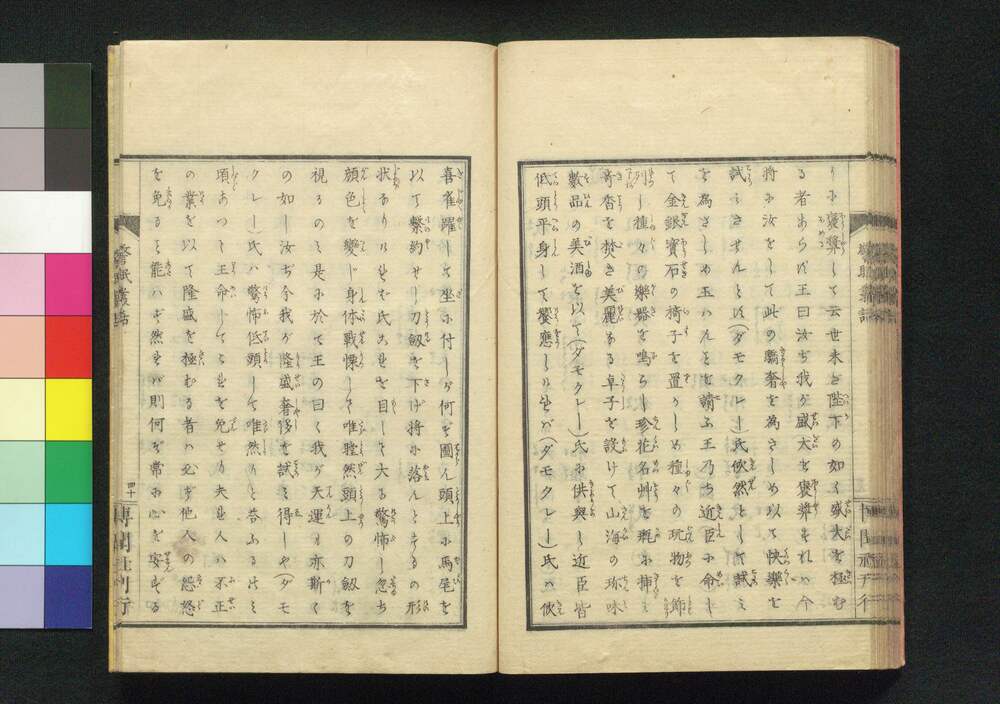 りに襃奬して云世未だ陛下の如く盛大を極む
る者あらバ王曰汝ぢ我が盛大を襃奬すれハ今
將に汝をして此の驕奢を為さしめ以て快樂を
試ミさせんとバ(ダモクレー)氏佽然として試ミ
を為さしめ玉ハんとを請ふ王乃ち近臣に命じ
て金銀寶石の椅子を置かしめ種々の玩物を飾
列し種々の樂器を鳴らし珍花名艸を瓶に挿ミ
奇香を焚き美麗ある卓子を設けて山海の珍味
數品の美酒を以て(ダモクレー)氏に供與し近臣皆
低頭平身して饗應しけれバ(ダモクレー)氏ハ佽
喜雀躍して坐に付しが何ぞ圖ん頭上に馬尾を
以て繋約せし刀劔を下げ將に落んとするの形
状ありけれを氏これを目して大る驚怖し忽ち
顔色を變じ身体戰慄して唯聳然頭上の刀劔を
視るのミ是に於て王の曰く我が天運も亦斯く
の如し汝ぢ今我が隆盛奢侈を試ミ得しや(ダモ
クレー)氏ハ驚怖低頭して唯然りと答ふるけミ
頃あつて王命してこれを免せり夫れハ不正
の業を以て隆盛を極むる者ハ必ず他人の怨怒
を免るる能ハず然れバ則何ぞ常に心を安ずる
警眠叢話
四十
博聞社刊行